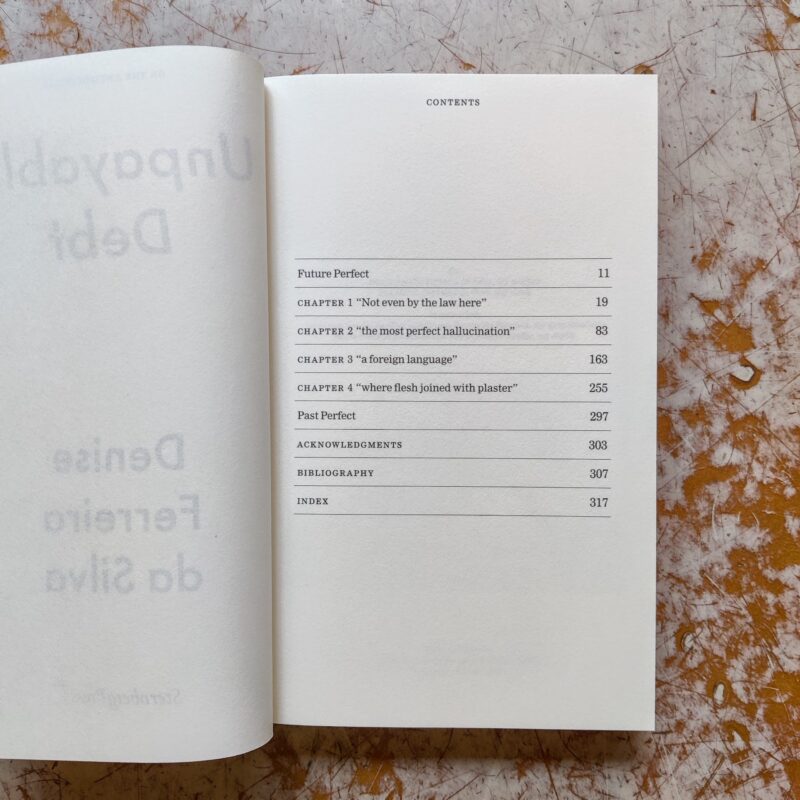 Unpayabl
Debt
Denise
Ferreira
da Silva
CONTENTS
Future Perfect 11
CHAPTER 1 “Not even by the law here” 19
CHAPTER 2 “the most perfect hallucination” 83
CHAPTER 3 “a foreign language” 163
CHAPTER 4 “where flesh joined with plaster” 255
Past Perfect 297
ACKNOWLEDGMENTS 303
BIBLIOGRAPHY 307
INDEX 317